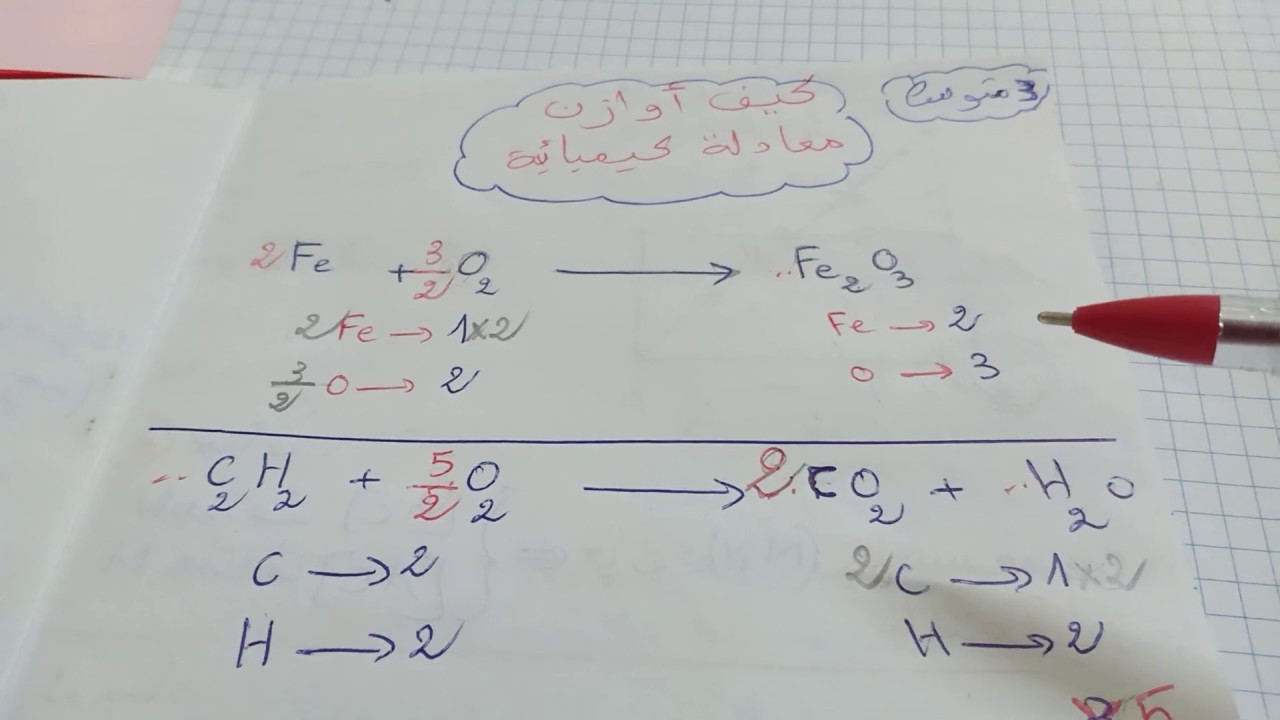 3 متوسط
كيف أوازن
معادلة كيميائية
2Fe + 3/2 O₂ → ..Fe₂O₃
2Fe → 1×2 Fe → 2
3/2 O → 2 O → 3
..C₂H₂ + 5/2 O₂ → 2.CO₂ + ..H₂O
C → 2 2C → 1×2
H → 2 H → 2
5